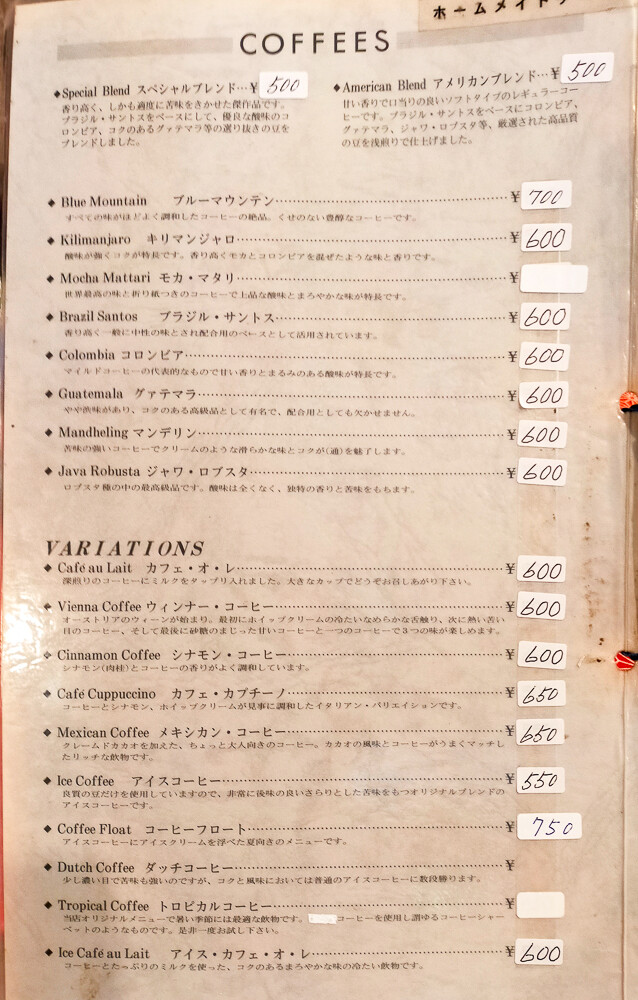 ホームメイド
COFFEES
◆Special Blend スペシャルブレンド…¥ 500
香り高く、しかも適度に苦味をきかせた傑作品です。
ブラジル・サントスをベースにして、優良な酸味のコ
ロンビア、コクのあるグァテマラ等の選り抜きの豆を
ブレンドしました。
◆American Blend アメリカンブレンド…¥ 500
甘い香りで口当りの良いソフトタイプのレギュラーコー
ヒーです。ブラジル・サントスをベースにコロンビア、
グァテマラ、ジャワ・ロブスタ等、厳選された高品質
の豆を浅煎りで仕上げました。
◆ Blue Mountain ブルーマウンテン…¥ 700
すべての味がほどよく調和したコーヒーの絶品。くせのない豊醇なコーヒーです。
◆ Kilimanjaro キリマンジャロ…¥ 600
酸味が強くコクが特長。香り高くモカとコロンビアを混ぜたような味と香りです。
◆ Mocha Mattari モカ・マタリ…¥
世界最高の味と折り紙つきのコーヒーで上品な酸味とまろやかな味が特長です。
◆ Brazil Santos ブラジル・サントス…¥ 600
香り高く一般に中性の味とされ配合用のベースとして活用されています。
◆ Colombia コロンビア…¥ 600
マイルドコーヒーの代表的なもので甘い香りとまるみのある酸味が特長です。
◆ Guatemala グァテマラ…¥ 600
やや渋味があり、コクのある高級品として有名で、配合用としても欠かせません。
◆ Mandheling マンデリン…¥ 600
苦味の強いコーヒーでクリームのような滑らかな味とコクが(通)を魅了します。
◆ Java Robusta ジャワ・ロブスタ…¥ 600
ロブスタ種の中の最高級品です。酸味は全くなく、独特の香りと苦味をもちます。
VARIATIONS
◆ Café au Lait カフェ・オ・レ…¥ 600
深煎りのコーヒーにミルクをタップリ入れました。大きなカップでどうぞお召しあがり下さい。
◆ Vienna Coffee ウィンナー・コーヒー…¥ 600
オーストリアのウィーンが始まり。最初にホイップクリームの冷たいなめらかな舌触り、次に熱い苦い
目のコーヒー、そして最後に砂糖のまじった甘いコーヒーと一つのコーヒーで3つの味が楽しめます。
◆ Cinnamon Coffee シナモン・コーヒー…¥ 600
シナモン(肉桂)とコーヒーの香りがよく調和しています。
◆ Café Cuppuccino カフェ・カプチーノ…¥ 650
コーヒーとシナモン、ホイップクリームが見事に調和したイタリアン・バリエイションです。
◆ Mexican Coffee メキシカン・コーヒー…¥ 650
クレームドカカオを加えた、ちょっと大人向きのコーヒー。カカオの風味とコーヒーがうまくマッチし
たリッチな飲物です。
◆ Ice Coffee アイスコーヒー…¥ 550
良質の豆だけを使用していますので、非常に後味の良いさらりとした苦味をもつオリジナルブレンドの
アイスコーヒーです。
◆ Coffee Float コーヒーフロート…¥ 750
アイスコーヒーにアイスクリームを浮べた夏向きのメニューです。
◆ Dutch Coffee ダッチコーヒー…¥
少し濃い目で苦味も強いのですが、コクと風味においては普通のアイスコーヒーに数段勝ります。
◆ Tropical Coffee トロピカルコーヒー…¥
当店オリジナルメニューで暑い季節には最適な飲物です。コーヒーを使用し謂ゆるコーヒーシャー
ベットのようなものです。是非一度お試し下さい。
◆ Ice Café au Lait アイス・カフェ・オ・レ…¥ 600
コーヒーとたっぷりのミルクを使った、コクのあるまろやかな味の冷たい飲物です。